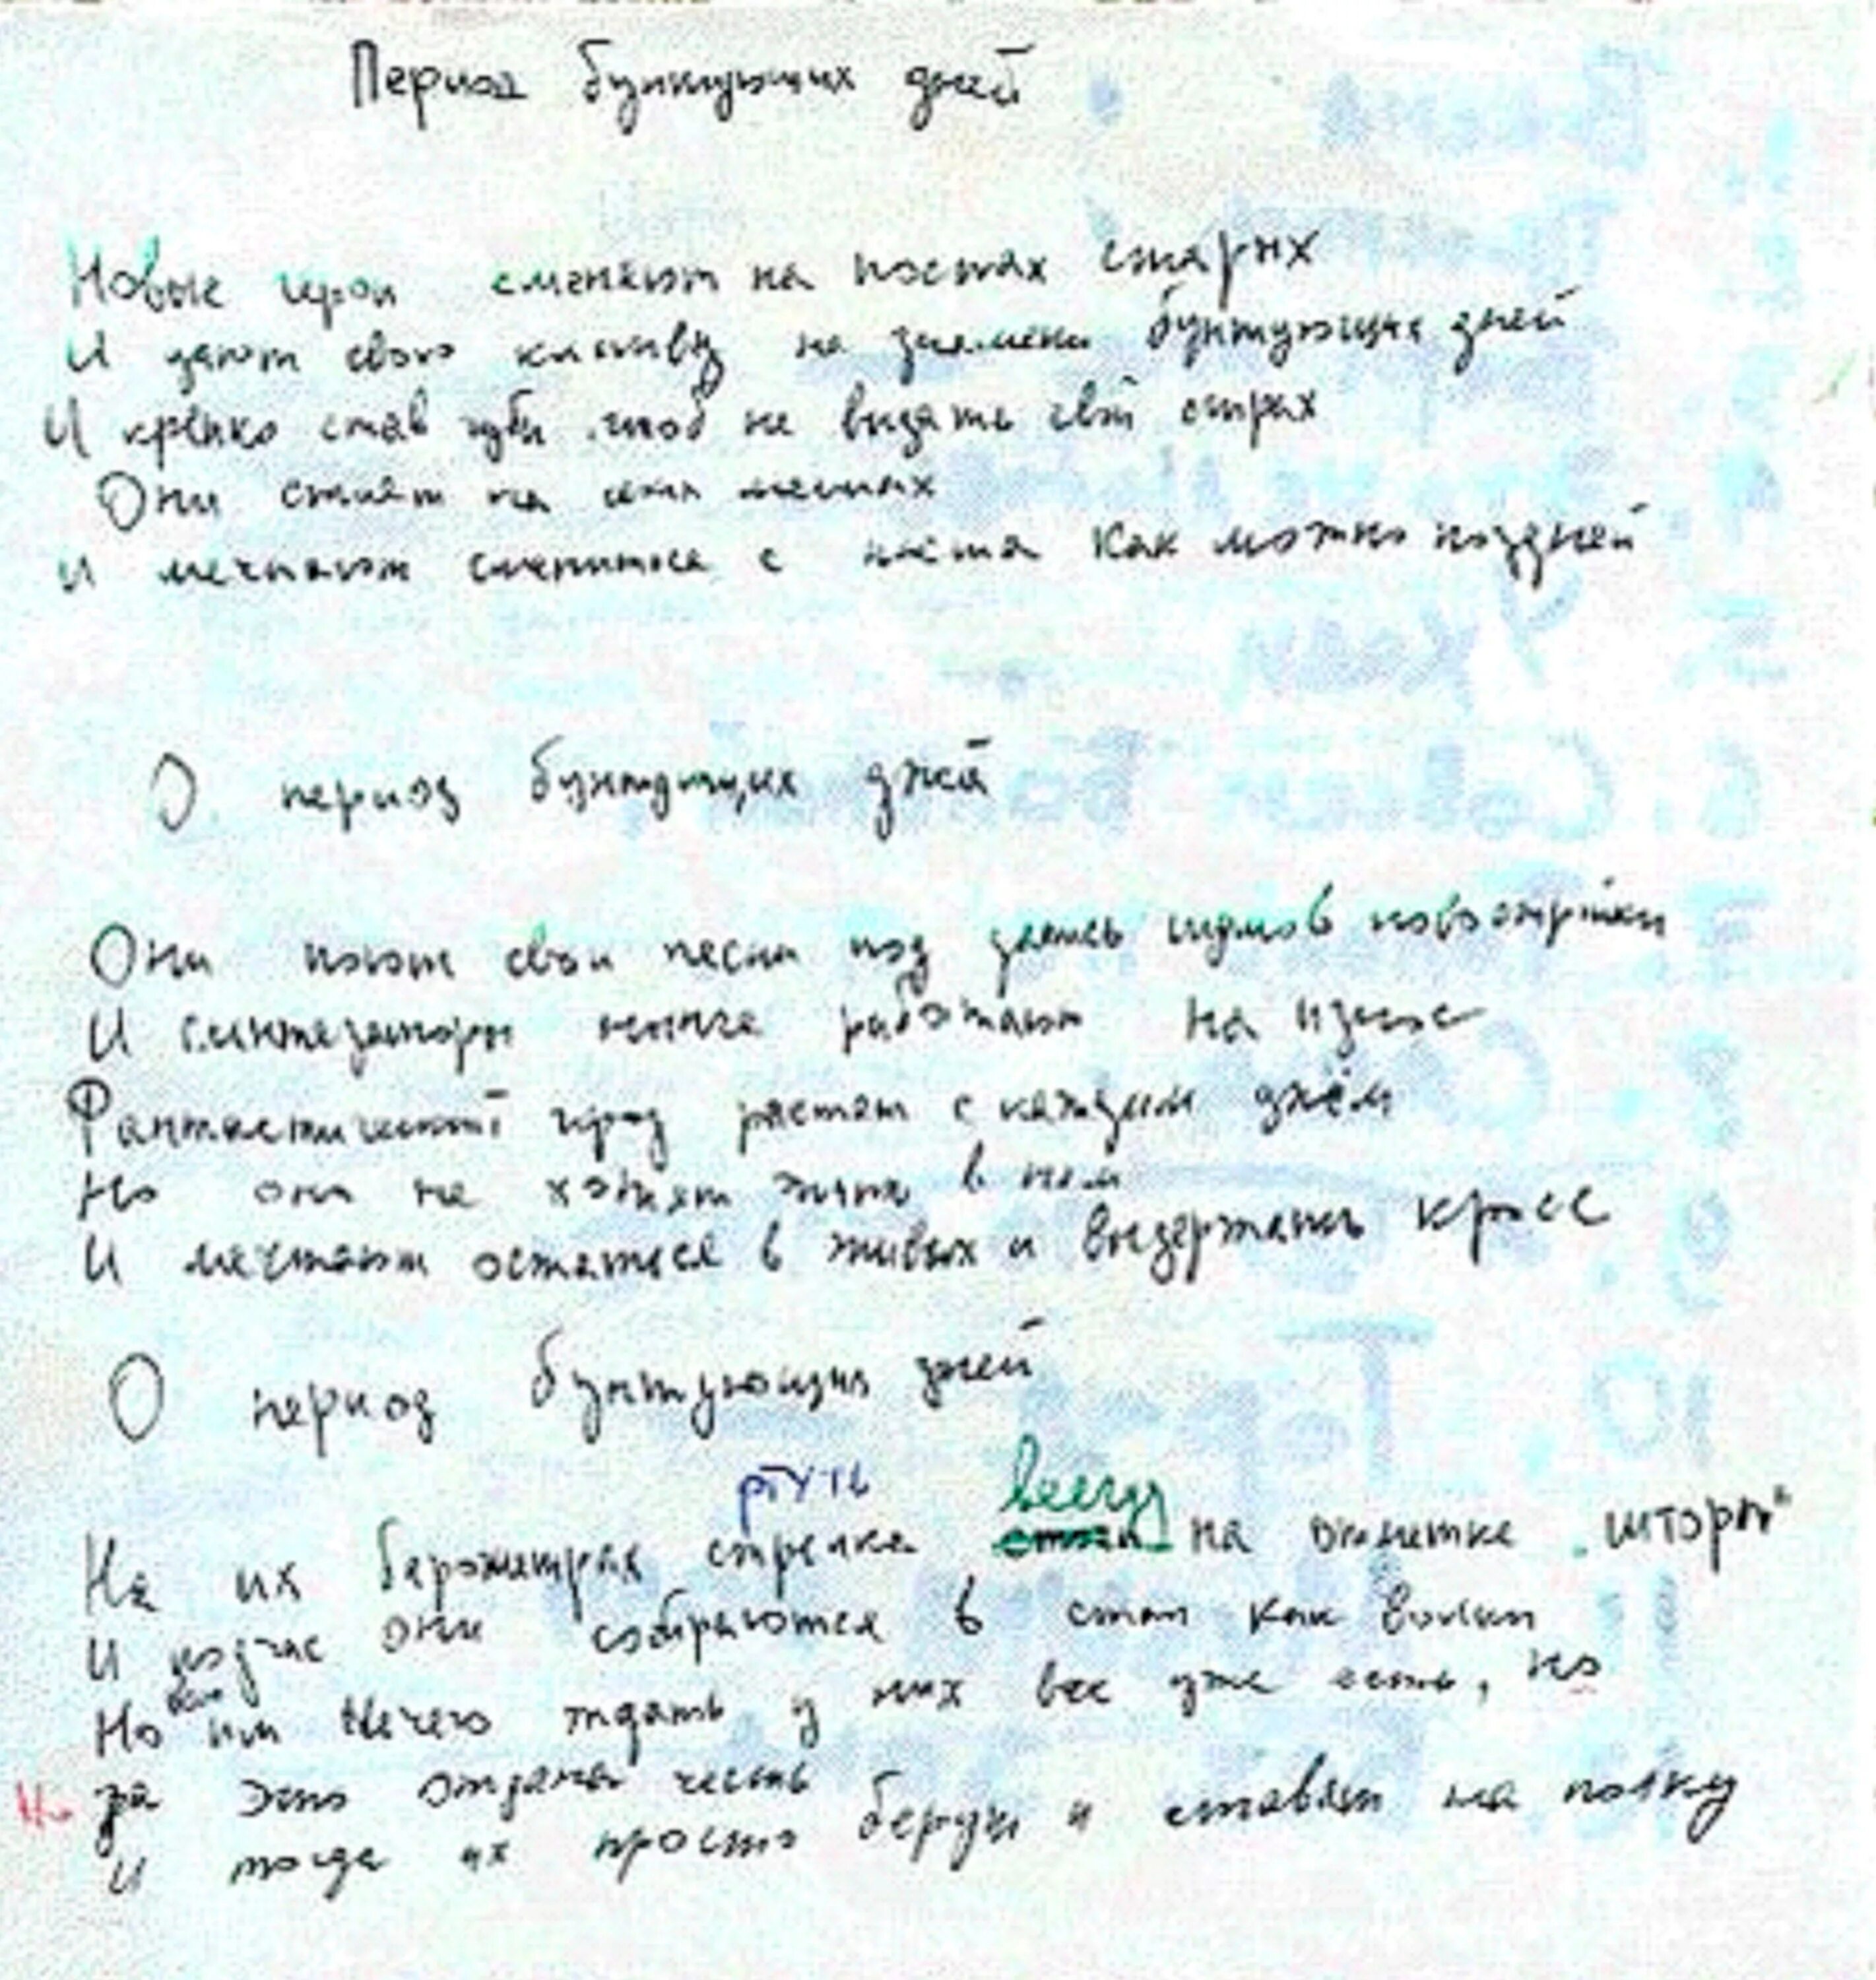 Период бунтующих дней
Новые герои сменяют на постах старых
И дают свою клятву на знамени бунтующих дней
И крепко сжав зубы чтоб не выдать свой страх
Они стоят на местах
И мечтают сменится с поста как можно поздней
О период бунтующих дней
Они поют свои песни под шумов новостройки
И синтезаторы работают на износ
Фантастический город растет с каждым днём
Но они не хотят жить в нем
И мечтают остаться в живых и выдержать кросс
О период бунтующих дней
ртуть всегда
На их барометрах стрелка на отметке "шторм"
И подчас они собираются в стаи как волки
Но им нечего ждать у них все уже есть, но
Но за это отдана честь
И тогда их просто берут и ставят на полку